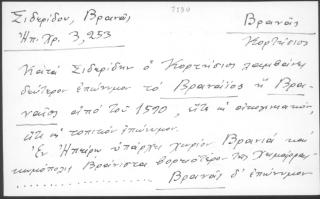 7590
Σιδερίδου, Βρανᾶς
Ἠπ. Χρ. 3, 253
Βρανᾶς
Κορτήσιος
Κατὰ Σιδερίδην ὁ Κορτήσιος λαμβάνει
δεύτερον ἐπώνυμον τὸ Βραναῖος ἢ Βρα-
νᾶς ἀπὸ τοῦ 1590, εἴτε οἰκογενειακόν,
εἴτε τοπικὸν ἐπώνυμον.
Ἐν Ἠπείρῳ ὑπάρχει χωρίον Βρανιά καὶ
κωμόπολις Βράνιστα βορειότερον τῆς Χειμάρρας
..................... Βρανᾶς δ' ἐπώνυμον